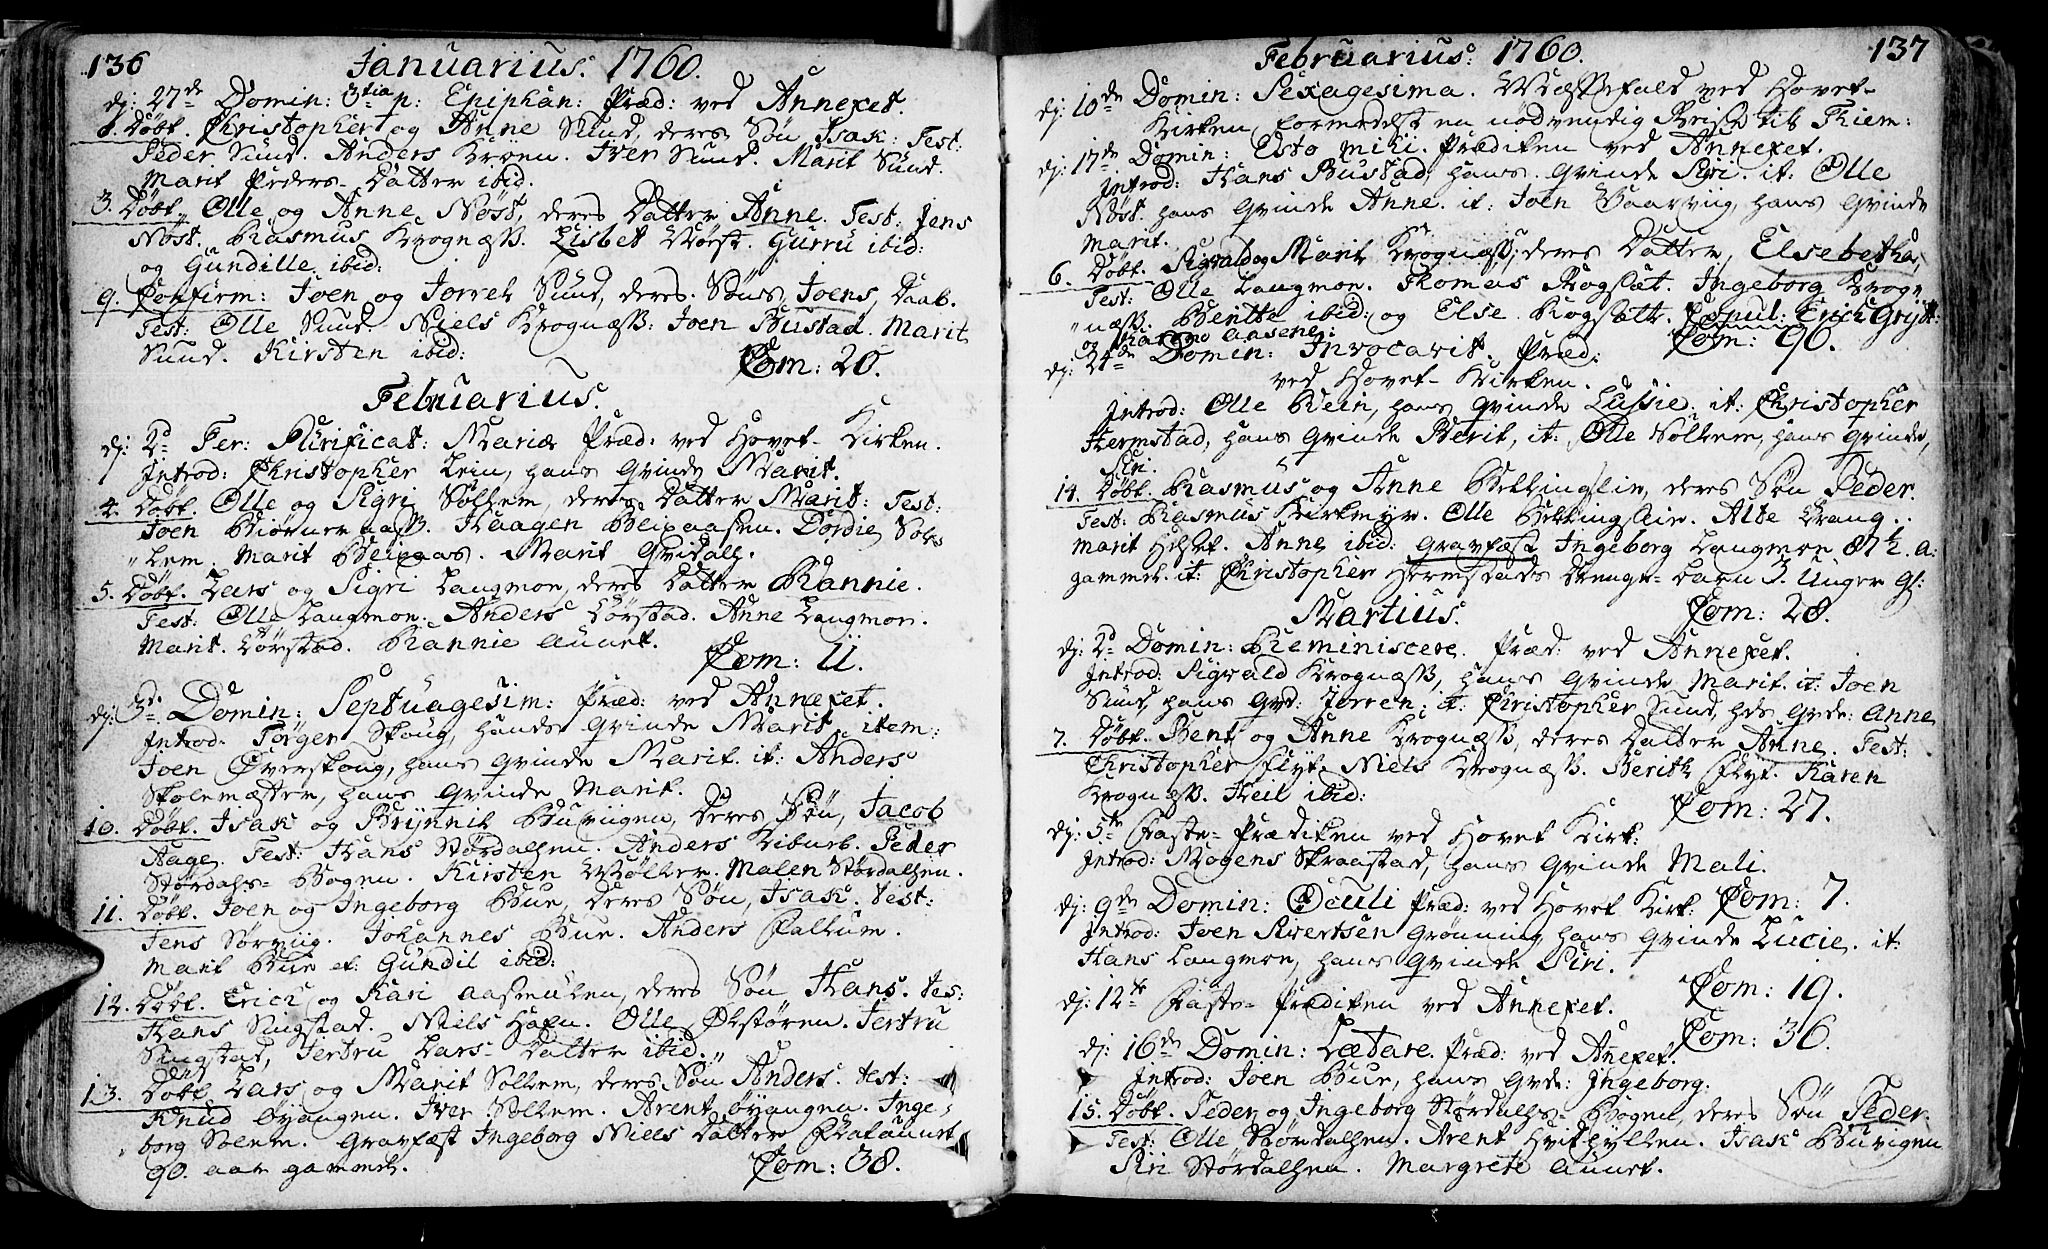 136 Januarius. 1760.
dj: 27de Domin: 3tia p: Epiphan: Præd: ved Annexet.
8. Døbt. Christopher og Anne Sund, deres Søn Isak: Test:
Peder Sund. Anders Krøen. Iver Sund. Marit Sund.
Marit Peders-Datter ibid.
3. Døbt. Olle og Anne Nøst, deres Datter Anne. Test: Jens
Nøst. Rasmus Krognæss. Lisbet Nøst. Gurru ibid:
og Gundille ibid:
9. Confirm: Joen og Jorreh Sund, deres Søns Joens Daab.
Test: Olle Sund. Niels Krognæss: Joen Bustad. Marit
Sund. Kirsten ibid:
Com: 20.
Februarius.
dj: 2d Fer: Purificat: Mariæ Præd: ved Hovet-Kirken.
Introd: Christopher Lein, hans Qvinde Marit.
4. Døbt. Olle og Sigri Solhem, deres Datter Marit: Test:
Joen Biørneraass. Haagen Bleixaasen. Dordie Sol-
"hem. Marit Bleixaas. Marit Qvidall.
5. Døbt. Lars og Sigri Langmoe, deres Datter Rannie.
Test: Olle Langmoe. Anders Børstad. Anne Langmoe.
Marit Børstad. Rannie Aunet.
Com: 11.
dj: 3de Domin: Septuagesim: Præd: ved Annexet.
Introd: Tørger Skoug, hands Qvinde Marit, item:
Joen Overskoug, hans Qvinde Marit. it: Anders
Skolemæster, hans Qvinde Marit.
10. Døbt. Isak og Brÿnnil Buviigen, deres Søn, Jacob
Aage. Test: Hans Størdalsen. Anders Kiburb. Peder
Størdals-Bogen. Kirsten Møller. Malen Størdalsen.
11. Døbt. Joen og Ingeborg Bue, deres Søn, Isak. Test:
Jens Sørviig. Johannes Bue. Anders Saltum.
Marit Bue et Gundil ibid:
12. Døbt. Erich og Kari Aasmulen, deres Søn Hans. Tes:
Hans Singstad. Niels Hofn. Olle Økstøren. Jertru
Singstad, Jertru Lars-Datter ibid."
13. Døbt Lars og Marit Solhem, deres Søn Anders. Test:
Knud Øyangen. Iver Solhem. Arent Øyangen. Inge-
"borg Solhem. Gravfæst Ingeborg Niels Datter aunet
90 aar gammel.
Com: 38.
Februarius: 1760. 137
dj: 10de Domin: Sexagesima. Messefald ved Hovet-
Kirken, formedelst en nødvendig Reise til Thiem:
dj: 17de Domin: Esto mihi. Prædiken ved Annexet.
Introd: Hans Bustad, hans Qvinde Siri. it: Olle
Nøst. hans Qvinde Anne. it: Joen Saarviig, hans Qvinde
Marit.
6. Døbt. Sigvald og Marit Krognæss, deres Datter, Elsebetha,
Test: Olle Langmoe. Thomas Rogstat. Ingeborg Krog-
"næss. Benthe ibid: og Else Rogstatt. Copul: Erich Grÿt:
og Karen Aasene:
Com: 90.
dj: 24de Domin: Invocavit. Præd:
ved Hovet-Kirken.
Introd: Olle Wein, hans Qvinde Lussie. it: Christopher
Hermstad, hans Qvinde Berit, it: Olle Solhem, hans Qvinde,
Siri.
14. Døbt. Rasmus og Anne Rellingslie, deres Søn Peder.
Test: Rasmus Kirkmyr. Olle Rellingslie. Alte Krang.
Marit Helset. Anne ibid: Gravfæst Ingeborg Langmoe 87½. a:
gammel. it: Christopher Hermstads Drenge-barn 3. Uger gl:
Martius.
Com: 28.
dj: 2d Domin: Reminiscere. Præd: ved Annexet.
Introd: Sigvald Krognæss, hans Qvinde Marit. it: Joen
Sund, hans Qvd: Jorren: it: Christopher Sund, hds Qvde: Anne
7. Døbt. Bent og Anne Krognæss, deres Datter Anne. Test:
Christopher Flyt. Niels Krognæss. Berith Flyt. Karen
Krognæss. Keil ibid:
Com: 27.
dj: 5te Faste-Prædiken ved Hovet Kirk:
Introd: Mogens Skraastad, hans Qvinde Mali.
dj: 9de Domin: Oculi Præd: ved Hovet Kirk: Com: 7.
Introd: Joen Sivertsen Grønning, hans Qvinde Lucie. it:
Hans Langmoe, hans Qvinde Siri.
Com: 19.
dj: 12te Faste-Prædiken ved Annexet.
Com: 36.
dj: 16de Domin: Lætare. Præd: ved Anexet.
Introd: Joen Bue, hans Qvde: Ingeborg.
15. Døbt. Peder og Ingeborg Størdalls-Bogen, deres Søn Peder.
Test: Olle Størdalsen. Arent Hvithyllen. Isak Buvigen
Siri Størdalsen. Margrete Aunet.